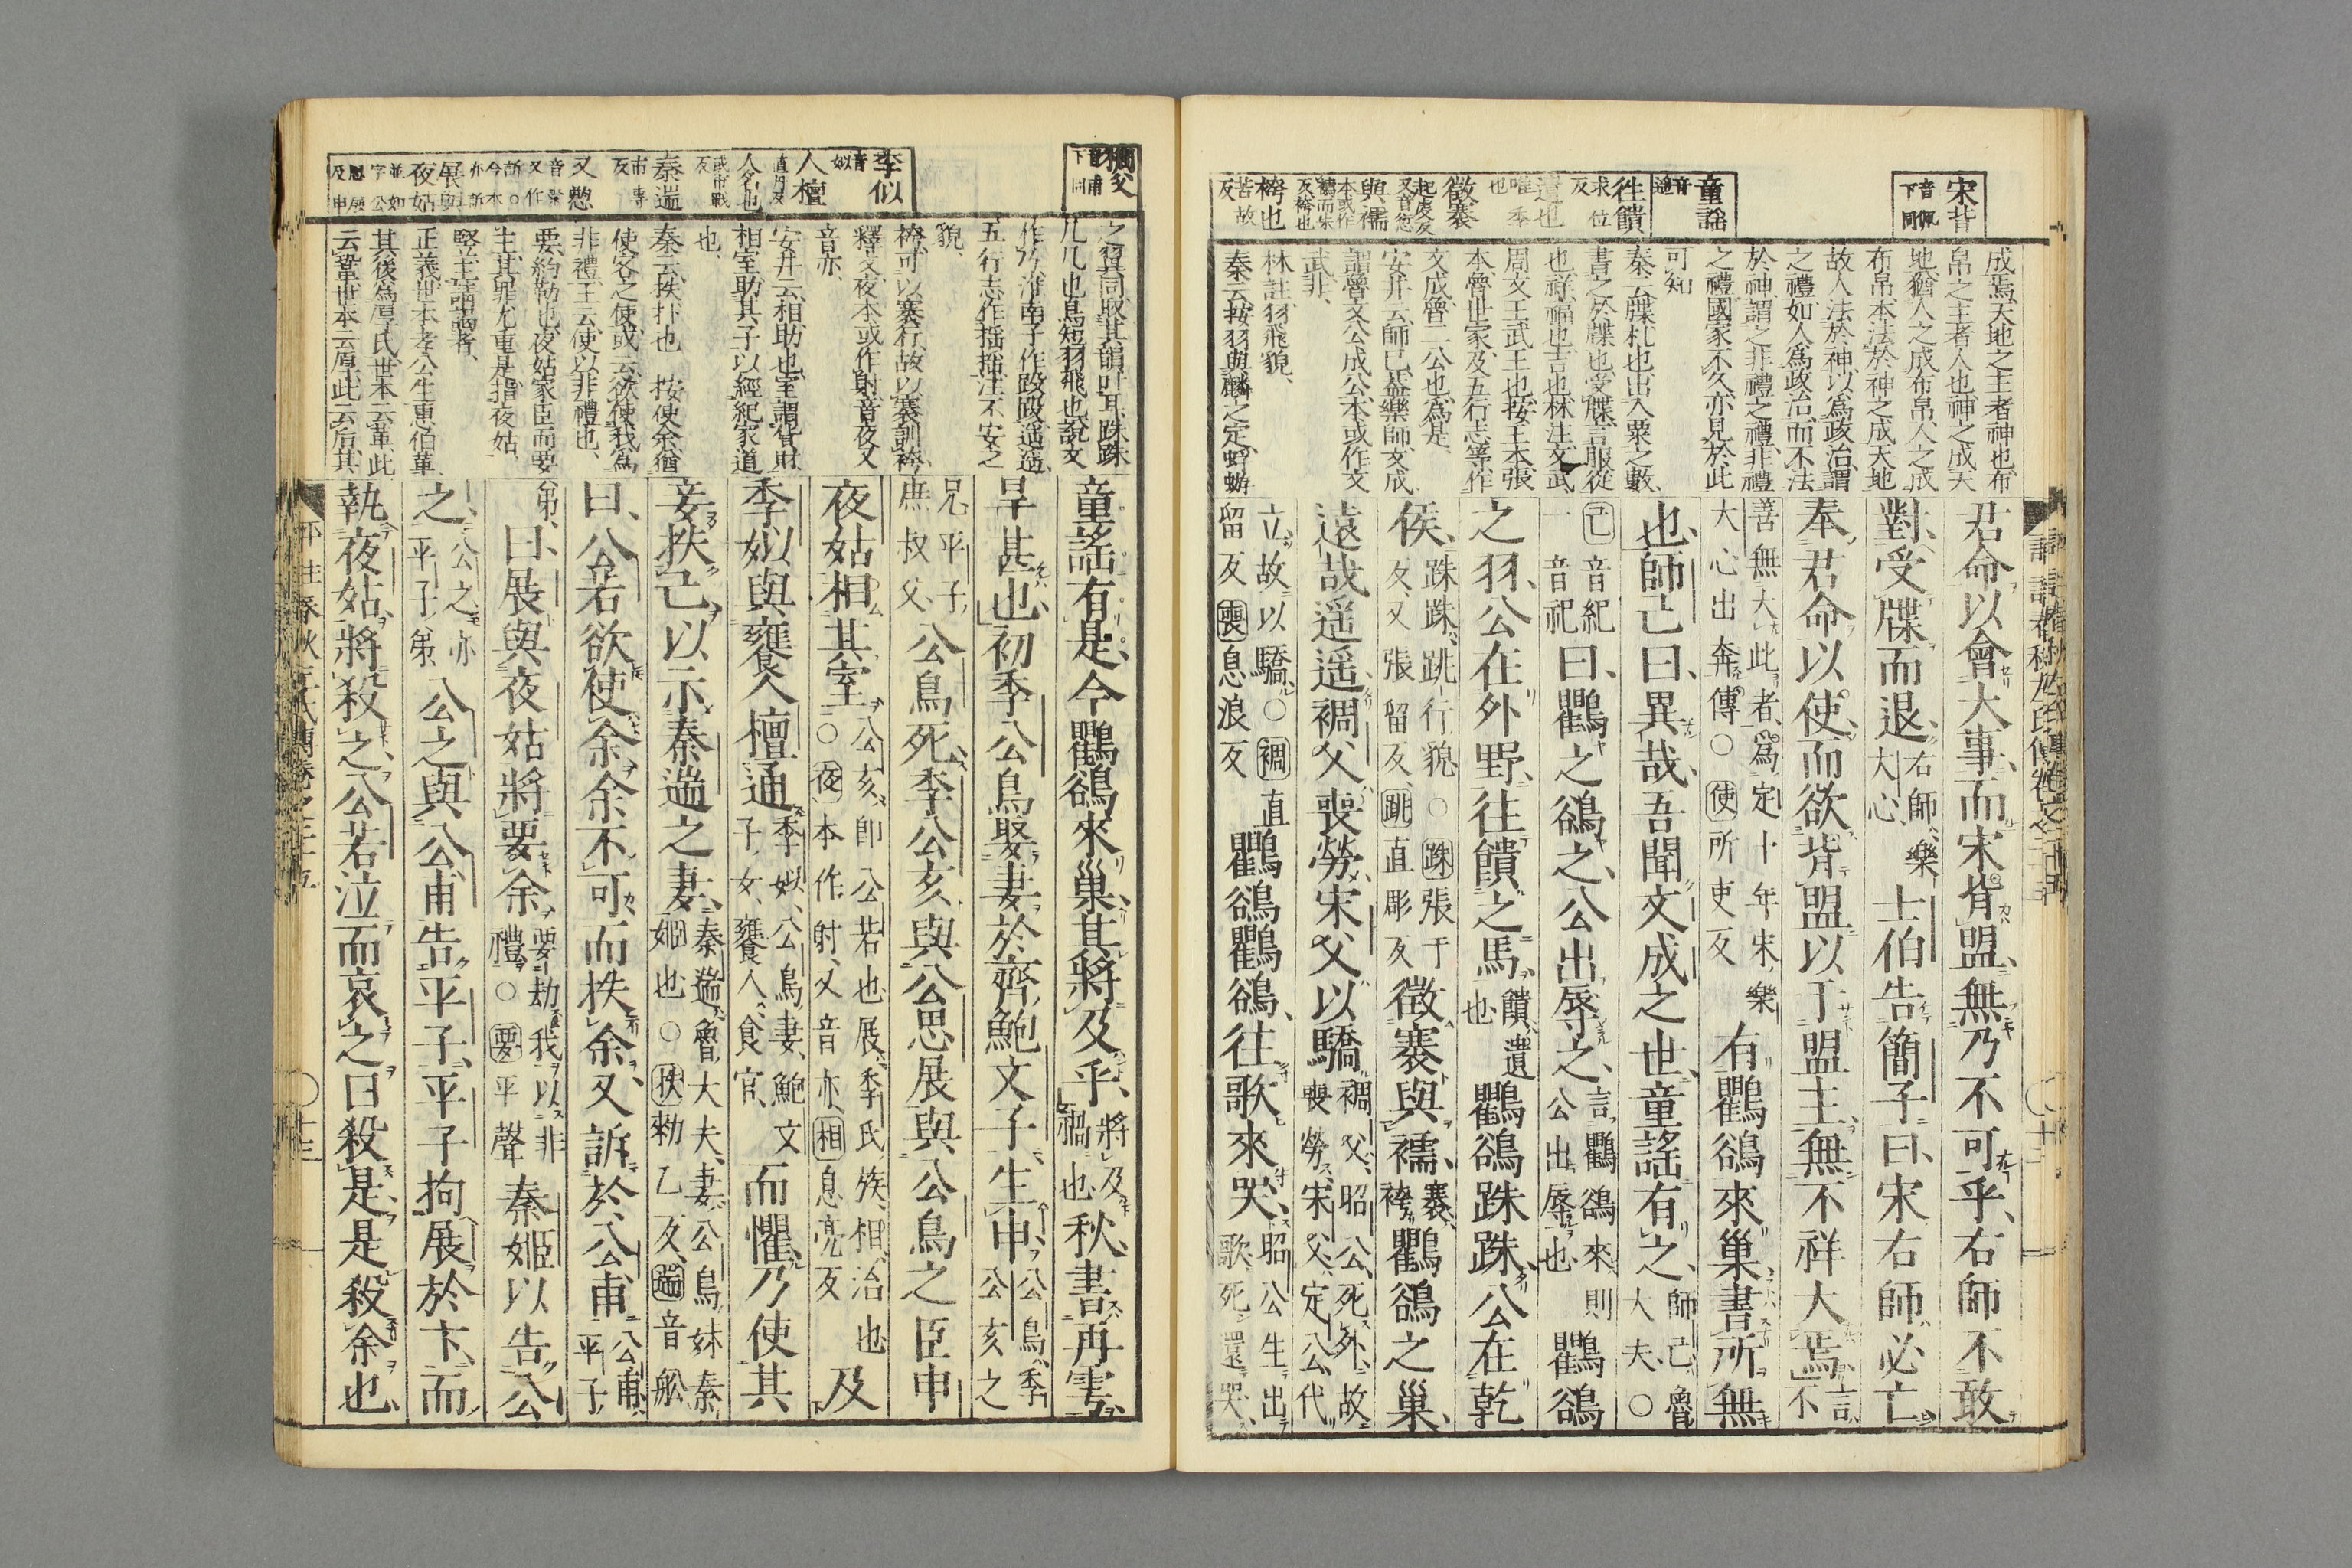 宋背
音佩
下同
童謠
音遥
往饋
求位
反
遺也
唯季
也
徵褰
起虔反
又音愆
與襦
本或作
襦而朱
反袴也
袴也
苦故
反
成焉天地之主者神也布
帛之主者人也神之成天
地猶人之成布帛人之成
布帛本法於神之成天地
故人法於神以爲政治謂
之禮如人爲政治而不法
於神謂之非禮之禮非禮
之禮國家不久亦見於此
可知
秦云牒札也出入粟之數
書之於牒也受牒言服從
也祥福也吉也林注文武
周文王武王也按王本張
本魯世家及五行志等作
文成魯二公也爲是
安井云師己蓋樂師文成
謂魯文公成公本或作文
武非
林註羽飛貌
秦云按羽與麟之定蜉蝣
君命以會大事而宋背盟無乃不可乎右師不敢
對受牒而退
右師樂
大心
士伯告簡子曰宋右師必亡
奉君命以使而欲背盟以干盟主無不祥大焉
言不
善無大此者爲定十年宋樂
大心出奔傳○使所吏反
有鸜鵒來巢書所無
也師己曰異哉吾聞文成之世童謠有之
師己魯
大夫○
己音紀
一音祀
曰鸜之鵒之公出辱之
言鸜鵒來則
公出辱也
鸜鵒
之羽公在外野往饋之馬
饋遺
也
鸜鵒跦跦公在乾
侯
跦跦跳行貌○跦張于
反又張留反跳直彫反
徵褰與襦
褰
袴
鸜鵒之巢
遠哉遥遥裯父喪勞宋父以驕
裯父昭公死外故
喪勞宋父定公代
立故以驕○裯直
留反喪息浪反
鸜鵒鸜鵒往歌來哭
昭公生出
歌死還哭
禂父
音甫
下同
季姒
音
姒
人檀
直丹反
人名也
或市戰
反
秦遄
市專
反
又愬
音素
又作
訴○
今本
亦訴
展與
夜姑
並如
字公
思展
及申
之羽同取其韻叶耳跦跦
几几也鳥短羽飛也說文
作殳淮南子作跂跂遥遥
五行志作摇摇注不安之
貌
袴可以褰行故以褰訓袴
釋文夜本或作射音夜又
音亦
安井云相助也室謂貨財
相室助其子以經紀家道
也
秦云抶扑也　按使余猶
使客之使或云欲使我爲
非禮王云使以非禮也
要約勒也夜姑家臣而要
主其罪尤重是指夜姑
竪主謂謁者
正義世本孝公生惠伯革
其後爲厚氏世本云革此
云鞏世本云厚此云后其
童謠有是今鸜鵒來巢其將及乎
將及
禍也
秋書再雩
旱甚也初季公鳥娶妻於齊鮑文子生申
公鳥季
公亥之
兄平子
庶叔父
公鳥死季公亥與公思展與公鳥之臣申
夜姑相其室
公亥即公若也展季氏族相治也
○夜本作射又音亦相息亮反
及
季姒與饔人檀通
季姒公鳥妻鮑文
子女饔人食官
而懼乃使其
妾抶己以示秦遄之妻
秦遄魯大夫妻公鳥妹秦
姬也○抶勑乙反遄音船
曰公若欲使余余不可而抶余又訴於公甫
公甫
平子
弟
曰展與夜姑將要余
要劫我以非
禮○要平聲
秦姬以告公
之
公之亦
平子弟
公之與公甫告平子平子拘展於卞而
執夜姑將殺之公若泣而哀之曰殺是是殺余也